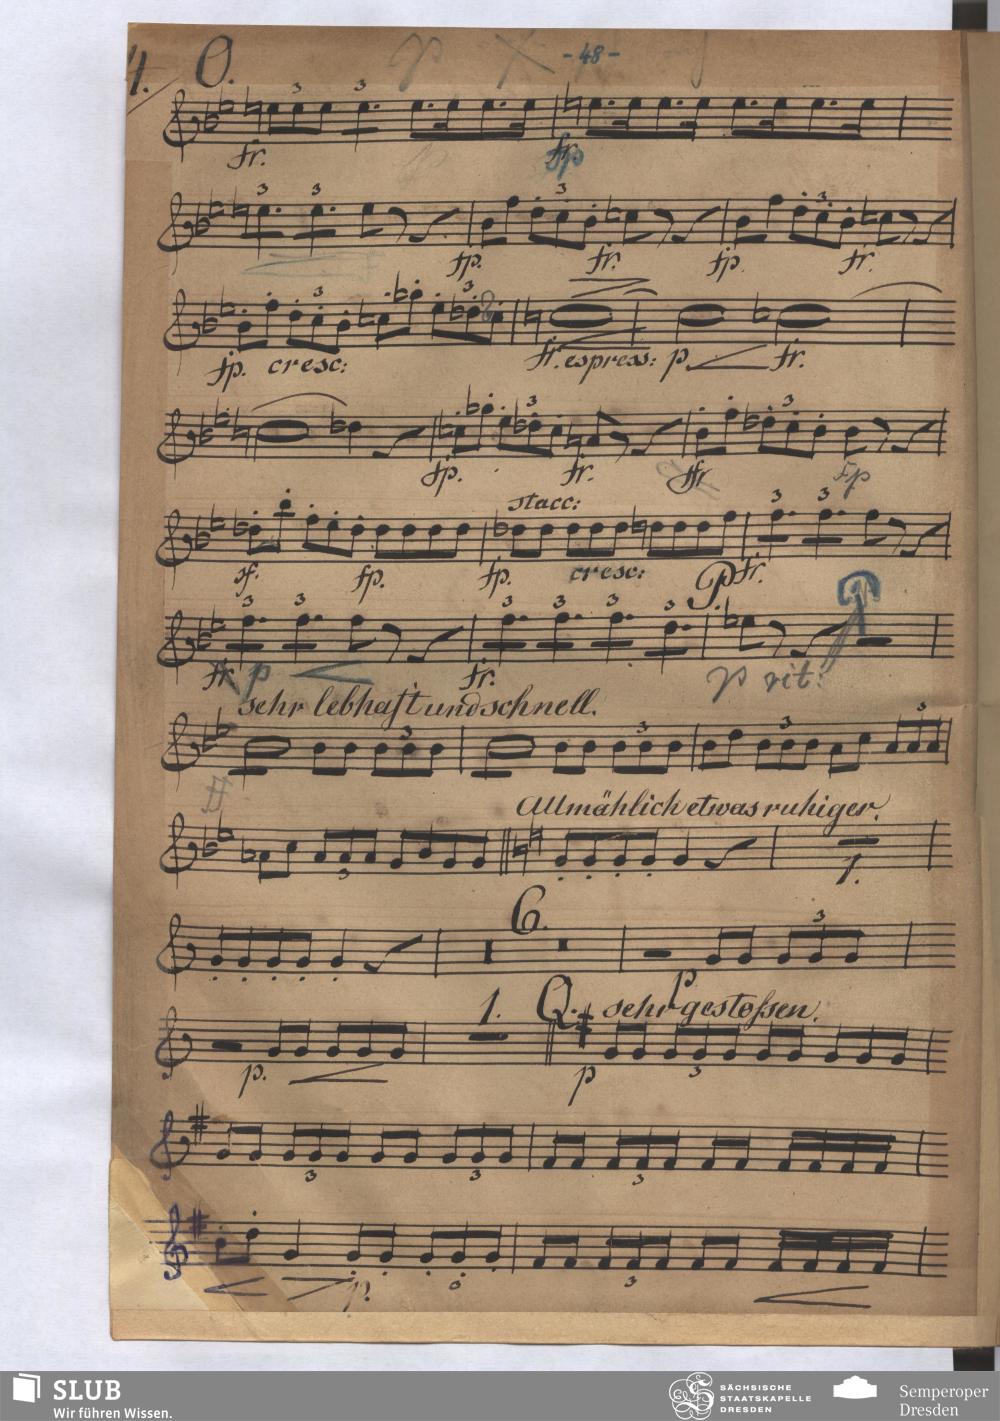 4. O. p - 48 -
3 3
fr. p fr. fp
3 3 3 3
fp. fr. fp. fr.
3 3
fp. cresc: fr. espress: p. fr.
3 3
fp. fr. ffr fp
stacc: 3 3
sf. fp. fp. cresc: P. fr.
3 3 3 3 3 3
fr. p fr. p rit:
sehr lebhaft und schnell.
3 3 3 3
Allmählich etwas ruhiger.
3 1.
6.
3
p
1. Q. sehr gestoßen.
p. p 3
3 3 3
p. 3
SLUB
Wir führen Wissen.
SÄCHSISCHE
STAATSKAPELLE
DRESDEN
Semperoper
Dresden